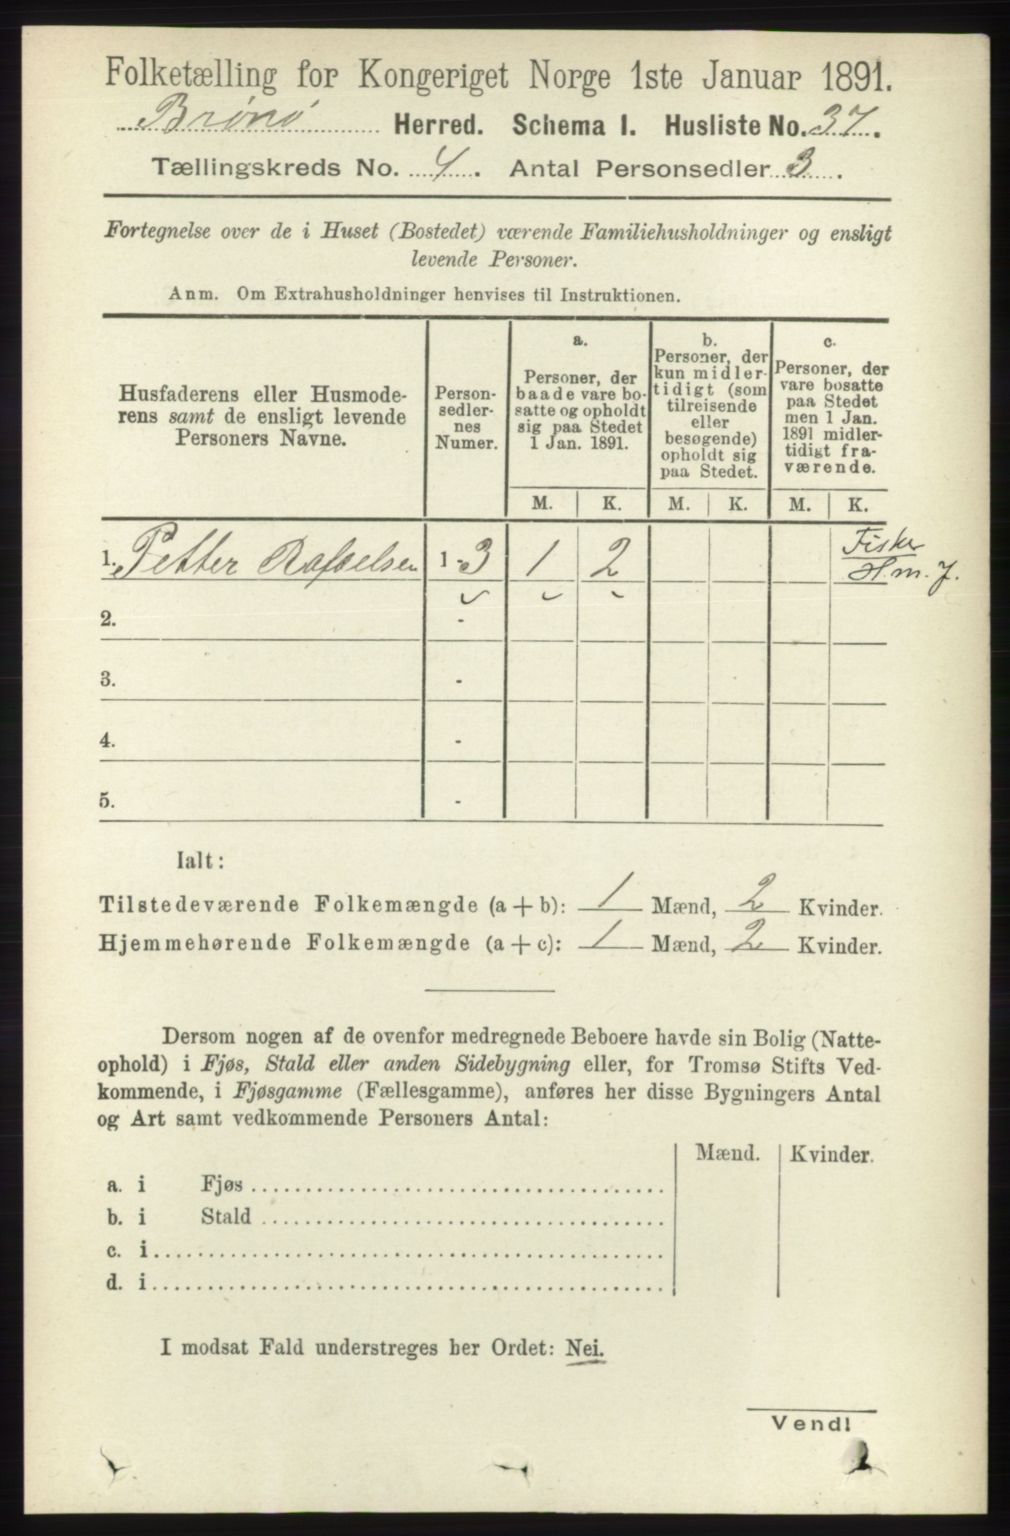 Folketælling for Kongeriget Norge 1ste Januar 1891.
Brønø Herred. Schema I. Husliste No. 37.
Tællingskreds No. 4. Antal Personsedler 3.
Fortegnelse over de i Huset (Bostedet) værende Familiehusholdninger og ensligt
levende Personer.
Anm. Om Extrahusholdninger henvises til Instruktionen.
Husfaderens eller Husmode-
rens samt de ensligt levende
Personers Navne.
Person-
sedler-
nes
Numer.
a.
Personer, der
baade vare bo-
satte og opholdt
sig paa Stedet
1 Jan. 1891.
b.
Personer, der
kun midler-
tidigt (som
tilreisende
eller
besøgende)
opholdt sig
paa Stedet.
c.
Personer, der
vare bosatte
paa Stedet
men 1 Jan.
1891 midler-
tidigt fra-
værende.
M. K. M. K. M. K.
1. Petter Rafaelsen 1-3 1 2 Fisker
H.m.J.
2. -
3. -
4. -
5. -
Ialt:
Tilstedeværende Folkemængde (a + b): 1 Mænd, 2 Kvinder.
Hjemmehørende Folkemængde (a + c): 1 Mænd, 2 Kvinder.
Dersom nogen af de ovenfor medregnede Beboere havde sin Bolig (Natte-
ophold) i Fjøs, Stald eller anden Sidebygning eller, for Tromsø Stifts Ved-
kommende, i Fjøsgamme (Fællesgamme), anføres her disse Bygningers Antal
og Art samt vedkommende Personers Antal:
Mænd. Kvinder.
a. i Fjøs
b. i Stald
c. i
d. i
I modsat Fald understreges her Ordet: Nei.
Vend!